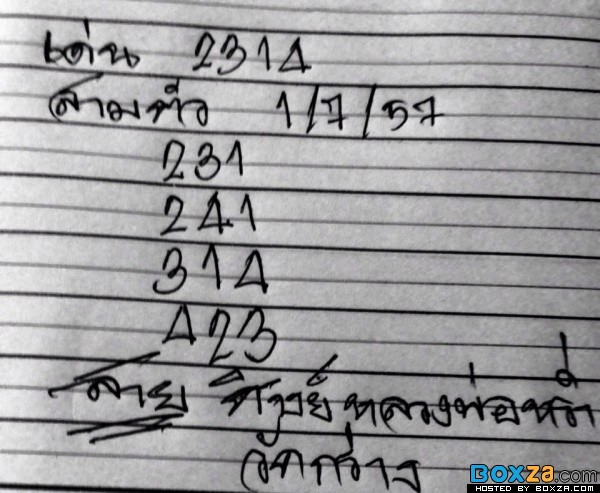 เด่น 2314
สามตัว 1/7/57
231
241
314
423
สาย ศิษย์ หลวงพ่อ
วัด
BOXZA.com
HOSTED BY BOXZA.COM